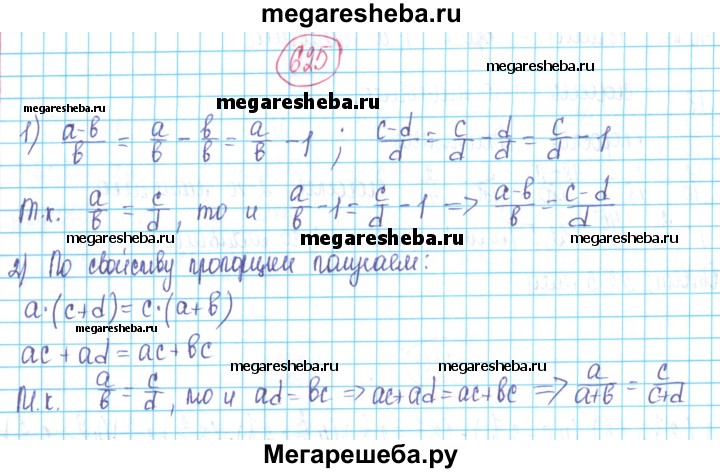 megaresheba.ru
625
megaresheba.ru
megaresheba.ru
megaresheba.ru
1) (a-b)/b = a/b - b/b = a/b - 1 ; (c-d)/d = c/d - d/d = c/d - 1
Т.к. a/b = c/d, то и a/b - 1 = c/d - 1 => (a-b)/b = (c-d)/d
megaresheba.ru megaresheba.ru megaresheba.ru
2) По свойству пропорции получаем:
a·(c+d)=c·(a+b)
megaresheba.ru
ac+ad=ac+bc
megaresheba.ru megaresheba.ru
Т.к. a/b = c/d, то и ad=bc => ac+ad=ac+bc => a/(a+b) = c/(c+d)
Мегарешеба.ру